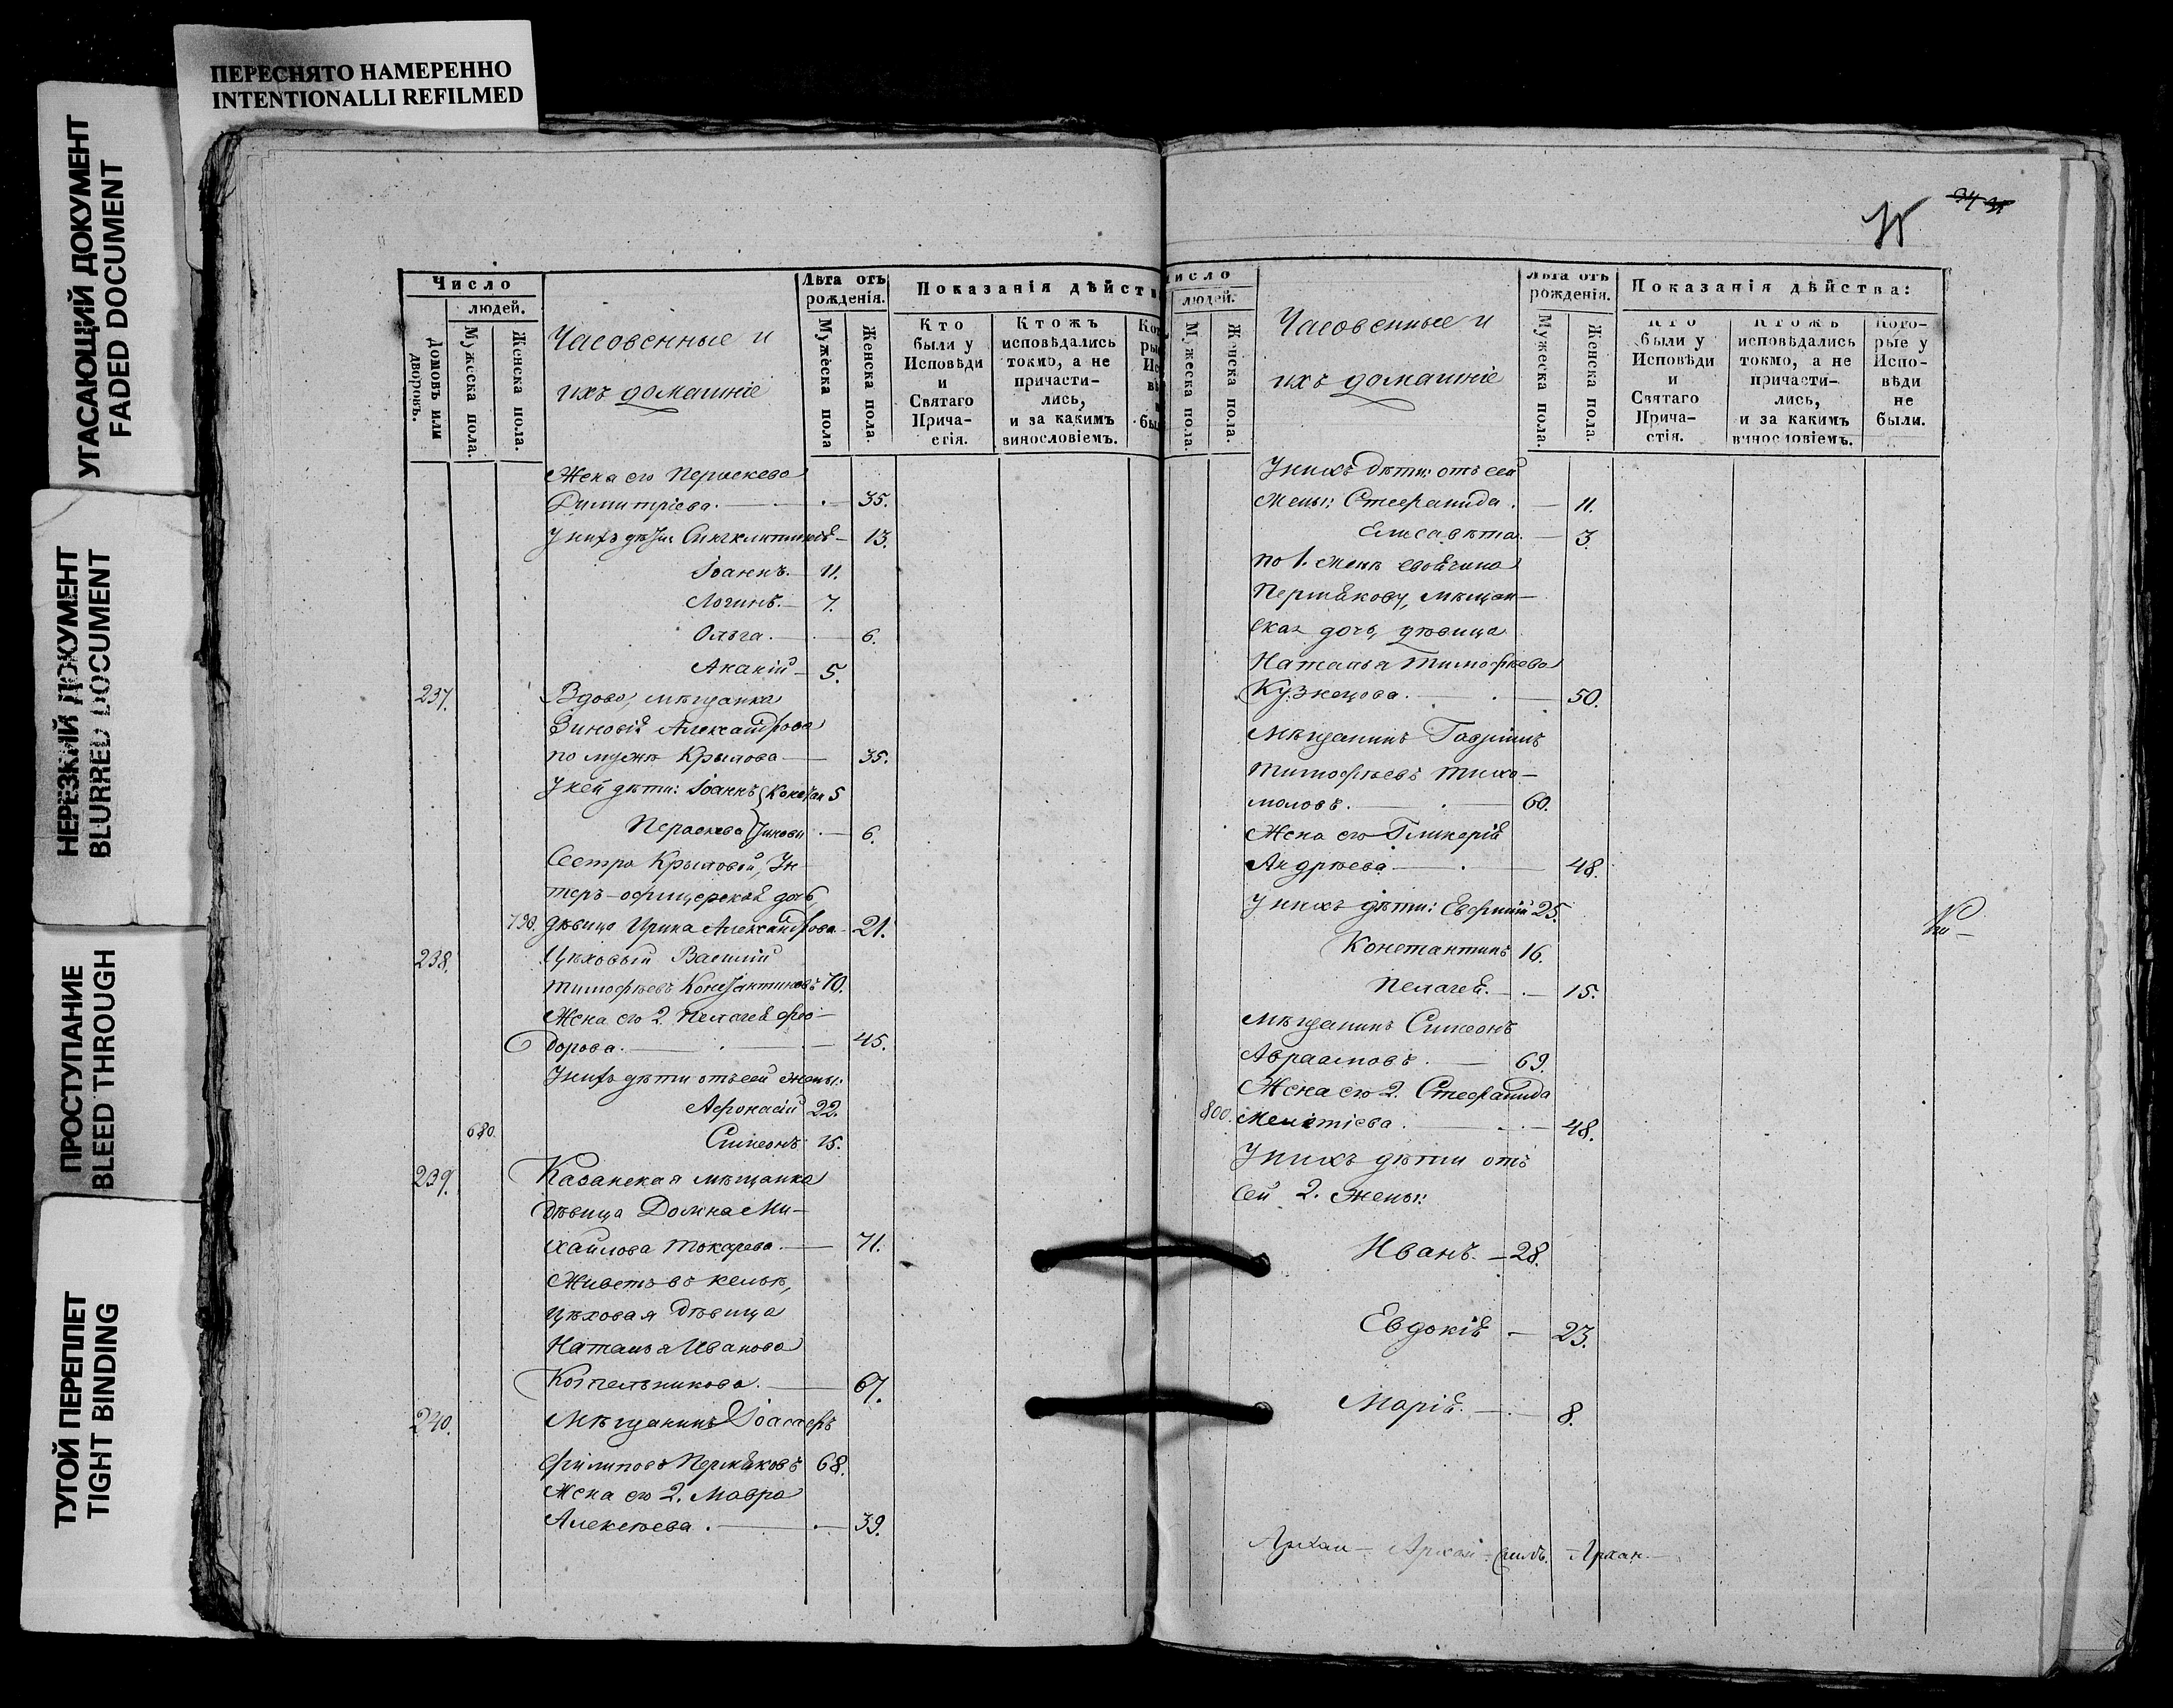 ПЕРЕСНЯТО НАМЕРЕННО
INTENTIONALLI REFILMED
УГАСАЮЩИЙ ДОКУМЕНТ
FADED DOCUMENT
НЕРЕЗКИЙ ДОКУМЕНТ
BLURRED DOCUMENT
ПРОСТУПАНИЕ
BLEED THROUGH
ТУГОЙ ПЕРЕПЛЕТ
TIGHT BINDING
Число
людей.
Домовъ или дворовъ.
Мужеска пола.
Женска пола.
Часовенные и
ихъ домашніе
Лѣта отъ рожденія.
Мужеска пола
Женска пола.
Показанія дѣйств
Кто были у Исповѣди и Святаго Прича-стія.
Ктожъ исповѣдались токмо, а не причасти-лись, и за какимъ винословіемъ.
Жена его Перaскева
Димитріева. 35.
У нихъ дѣти: Синклитикія 13.
Іоаннъ. 11.
Логинъ. 7.
Ольга. 6.
Акакій 5.
237. Вдова, мѣщанка
Зиновія Александрова
по мужѣ Крылова 35.
У ней дѣти: Іоаннъ 5
Пераскева 6.
Сестра Крыловой, Ун-
теръ-офицерская дочь,
790. дѣвица Ирина Александрова 21.
238. Цѣховый Василій
Тимофѣевъ Константиновъ 70.
Жена его 2. Пелагея Фео-
дорова. 45.
У нихъ дѣти отъ сей жены:
Афонасій 22.
680. Симеонъ 15.
239. Казанская мѣщанка
дѣвица Домна Ми-
хайлова Токарева. 71.
Живетъ въ кельѣ,
цѣховая дѣвица
Наталья Иванова
Котельникова. 67.
240. Мѣщанинъ Іоасафъ
Филиповъ Пермяковъ 68.
Жена его 2. Мавра
Алексѣева. 39.
34
35
число
людей.
Мужеска пола.
Женска пола.
Часовенные и
ихъ домашніе
Лѣта отъ рожденія.
Мужеска пола.
Женска пола.
Показанія дѣйства:
Кто были у Исповѣди и Святаго Прича-стія.
Ктожъ исповѣдались токмо, а не причасти-лись, и за какимъ винословіемъ.
Кото-рые у Испо-вѣди не были.
У нихъ дѣти: отъ сей
жены: Стефанида. 11.
Елисавѣта. 3.
по 1. женѣ своячина
Пермякову, мѣщан-
ская дочь, дѣвица
Наталья Тимофѣева
Кузнецова. 50.
Мѣщанинъ Гавріилъ
Тимофѣевъ Тихо-
моловъ. 60.
Жена его Гликерія
Андрѣева 48.
У нихъ дѣти: Евфимій 25.
Константинъ 16.
Пелагея. 15.
Мѣщанинъ Симеонъ
Авраамовъ. 69.
Жена его 2. Стефанида
800. Мелетіева. 48.
У нихъ дѣти отъ
сей 2. жены:
Иванъ. 28.
Евдокія 23.
Марія. 8.